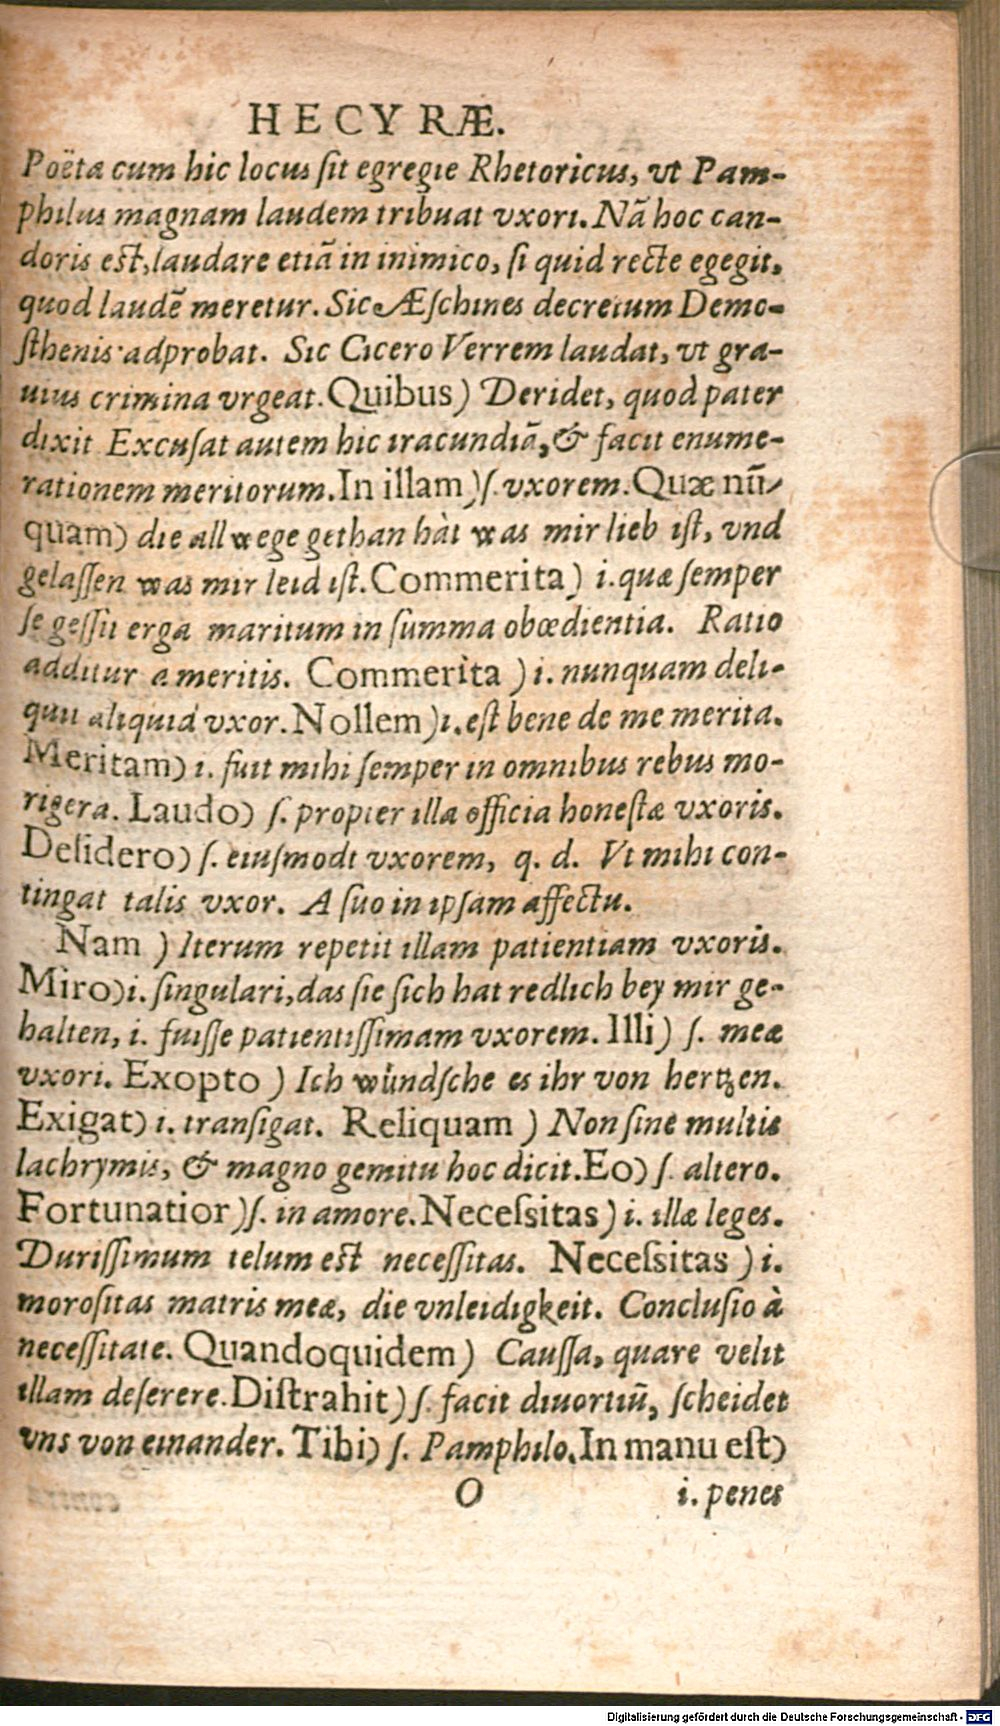 HECYRÆ.
Poëta cum hic locus ſit egregie Rhetoricus, vt Pam-
philus magnam laudem tribuat vxori. Nã hoc can-
doris eſt, laudare etiã in inimico, ſi quid recte egegit,
quod laudẽ meretur. Sic Æſchines decretum Demo-
ſthenis adprobat. Sic Cicero Verrem laudat, vt gra-
uius crimina vrgeat. Quibus) Deridet, quod pater
dixit Excuſat autem hic iracundiã, & facit enume-
rationem meritorum. In illam) ſ. vxorem. Quæ nũ-
quam) die allwege gethan hàt was mir lieb iſt, vnd
gelaſſen was mir leid iſt. Commerita) i. quæ ſemper
ſe geſſit erga maritum in ſumma obœdientia. Ratio
additur a meritis. Commerita) i. nunquam deli-
quit aliquid vxor. Nollem) i. eſt bene de me merita.
Meritam) i. fuit mihi ſemper in omnibus rebus mo-
rigera. Laudo) ſ. propter illa officia honeſtæ vxoris.
Deſidero) ſ. eiuſmodi vxorem, q. d. Vt mihi con-
tingat talis vxor. A ſuo in ipſam affectu.
Nam) Iterum repetit illam patientiam vxoris.
Miro) i. ſingulari, das ſie ſich hat redlich bey mir ge-
halten, i. fuiſſe patientiſſimam vxorem. Illi) ſ. meæ
vxori. Exopto) Ich wündſche es ihr von hertzen.
Exigat) i. tranſigat. Reliquam) Non ſine multis
lachrymis, & magno gemitu hoc dicit. Eo) ſ. altero.
Fortunatior) ſ. in amore. Neceſsitas) i. illæ leges.
Duriſſimum telum eſt neceſſitas. Neceſsitas) i.
moroſitas matris meæ, die vnleidigkeit. Concluſio à
neceſſitate. Quandoquidem) Cauſſa, quare velit
illam deſerere. Diſtrahit) ſ. facit diuortiũ, ſcheidet
vns von einander. Tibi) ſ. Pamphilo. In manu eſt)
O i. penes
Digitalisierung gefördert durch die Deutsche Forschungsgemeinschaft - DFG